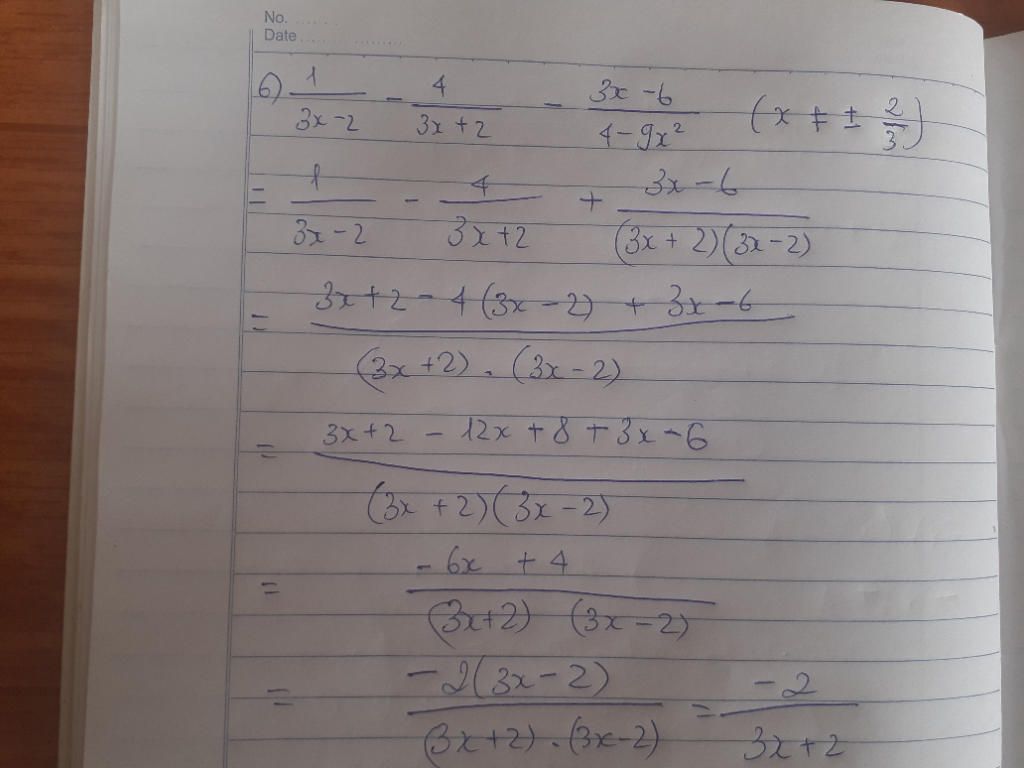 No. ...........
Date ......................
6) 1/(3x-2) - 4/(3x+2) - (3x-6)/(4-9x²) (x ≠ ± 2/3)
= 1/(3x-2) - 4/(3x+2) + (3x-6)/((3x+2)(3x-2))
= (3x+2-4(3x-2)+3x-6)/((3x+2).(3x-2))
= (3x+2-12x+8+3x-6)/((3x+2)(3x-2))
= (-6x+4)/((3x+2)(3x-2))
= (-2(3x-2))/((3x+2).(3x-2)) = -2/(3x+2)